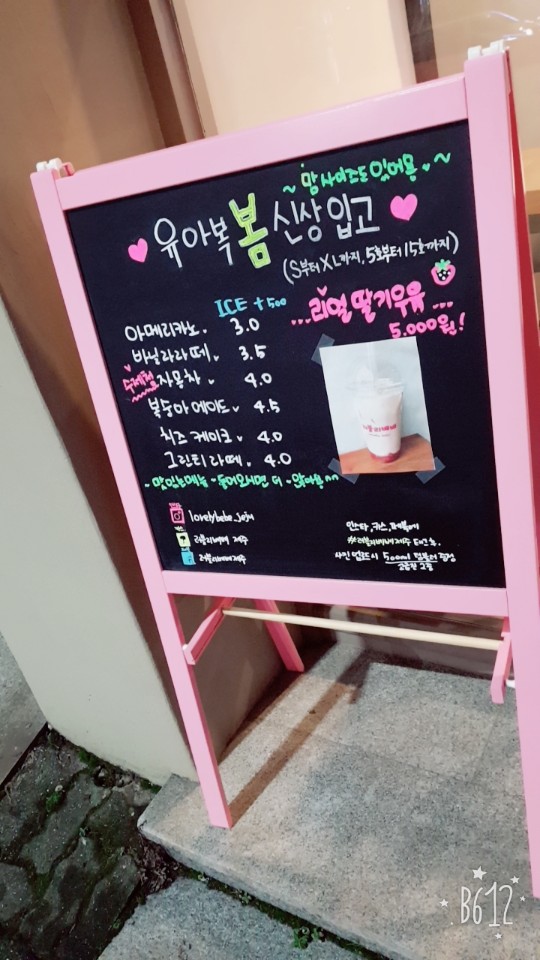 ~ 맘 사이즈도 있어용 ~
유아복 봄 신상 입고
(S부터 XL까지, 5호부터 15호까지)
ICE +500
아메리카노. 3.0
바닐라라떼. 3.5
수제청 자몽차. 4.0
복숭아에이드. 4.5
치즈케이크. 4.0
그린티라떼. 4.0
~ 맛있는메뉴 들어오시면 더 많아용 ^^
...리얼 딸기우유...
5.000원!
lovelybebe_jeju
러블리베베 제주
러블리베베제주
인스타, 카스, 페북에
#러블리베베제주 태그 &
사진 업로드시 500ml 텀블러 증정
B612